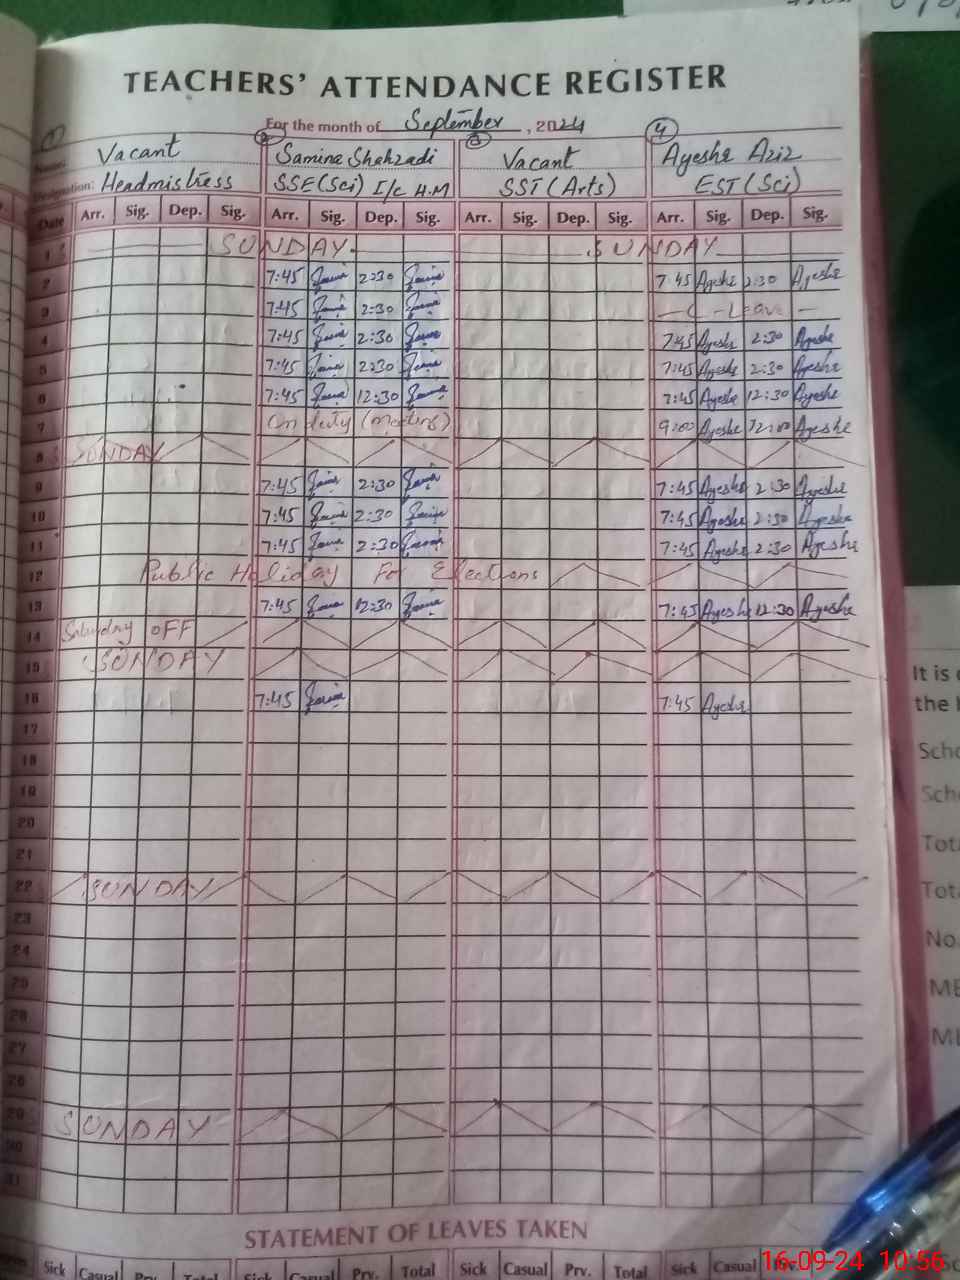 TEACHERS' ATTENDANCE REGISTER
For the month of September, 2024
1 2 3 4
Vacant Samina Shahzadi Vacant Ayesha Aziz
Designation: Headmistress SSE(Sci) I/c H.M SST (Arts) EST (Sci)
Date Arr. Sig. Dep. Sig. Arr. Sig. Dep. Sig. Arr. Sig. Dep. Sig. Arr. Sig. Dep. Sig.
1 SUNDAY. SUNDAY
2 7:45 2:30 7:45 Ayesha 2:30 Ayesha
3 7:45 2:30 C-Leave
4 7:45 2:30 7:45 Ayesha 2:30 Ayesha
5 7:45 2:30 7:45 Ayesha 2:30 Ayesha
6 7:45 12:30 7:45 Ayesha 12:30 Ayesha
7 On duty (meeting) 9:00 Ayesha 12:00 Ayesha
8 SUNDAY
9 7:45 2:30 7:45 Ayesha 2:30 Ayesha
10 7:45 2:30 7:45 Ayesha 2:30 Ayesha
11 7:45 2:30 7:45 Ayesha 2:30 Ayesha
12 Public Holiday For Elections
13 7:45 12:30 7:45 Ayesha 12:30 Ayesha
14 Saturday OFF
15 SUNDAY
16 7:45 7:45 Ayesha
17
18
19
20
21
22 SUNDAY
23
24
25
26
27
28
29 SUNDAY
30
31
STATEMENT OF LEAVES TAKEN
Sick Casual Prv. Total Sick Casual Prv. Total Sick Casual Prv. Total Sick Casual
It is
the
Scho
Sch
Tota
Tota
No.
ME
16-09-24 10:56